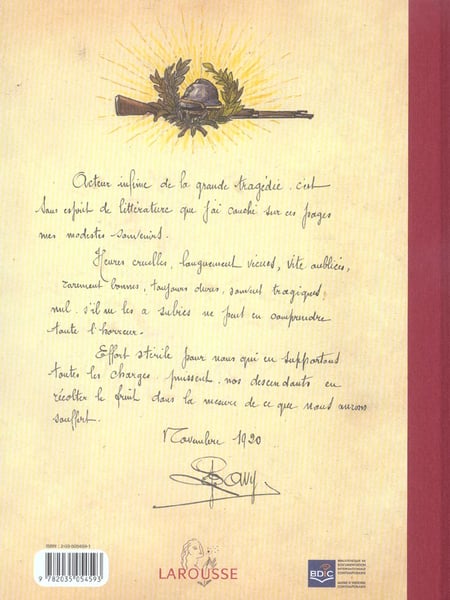 Acteur infime de la grande tragédie, c'est
sans esprit de littérature que j'ai couché sur ces pages
mes modestes souvenirs.
Heures cruelles, longuement vécues, vite oubliées,
rarement bonnes, toujours dures, souvent tragiques,
nul, s'il ne les a subies ne peut en comprendre
toute l'horreur.
Effort stérile pour nous qui en supportons
toutes les charges, puissent nos descendants en
récolter le fruit dans la mesure de ce que nous aurons
souffert.
Novembre 1920
9 782035 054593
LAROUSSE
BDIC
BIBLIOTHÈQUE DE
DOCUMENTATION
INTERNATIONALE
CONTEMPORAINE
MUSÉE D'HISTOIRE
CONTEMPORAINE